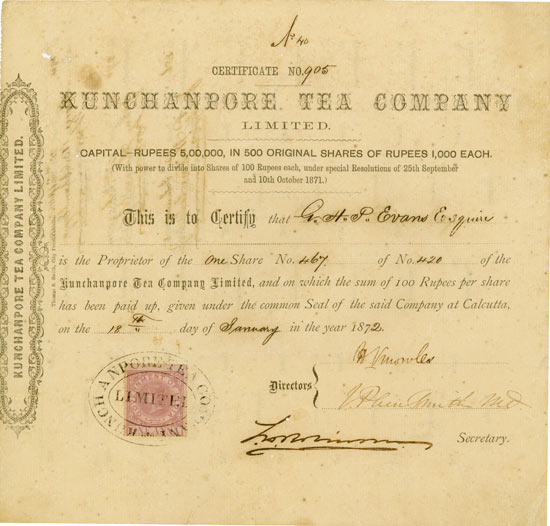 No 40
CERTIFICATE NO. 905
KUNCHANPORE TEA COMPANY
LIMITED.
CAPITAL—RUPEES 5,00,000, IN 500 ORIGINAL SHARES OF RUPEES 1,000 EACH.
(With power to divide into Shares of 100 Rupees each, under special Resolutions of 25th September
and 10th October 1871.)
This is to Certify that G. H. P. Evans Esquire
is the Proprietor of the One Share No. 467 of No. 420 of the
Kunchanpore Tea Company Limited, and on which the sum of 100 Rupees per share
has been paid up, given under the common Seal of the said Company at Calcutta,
on the 18th day of January in the year 1872.
Directors
Secretary.
KUNCHANPORE TEA COMPANY LIMITED.
KUNCHANPORE TEA COMPANY
LIMITED